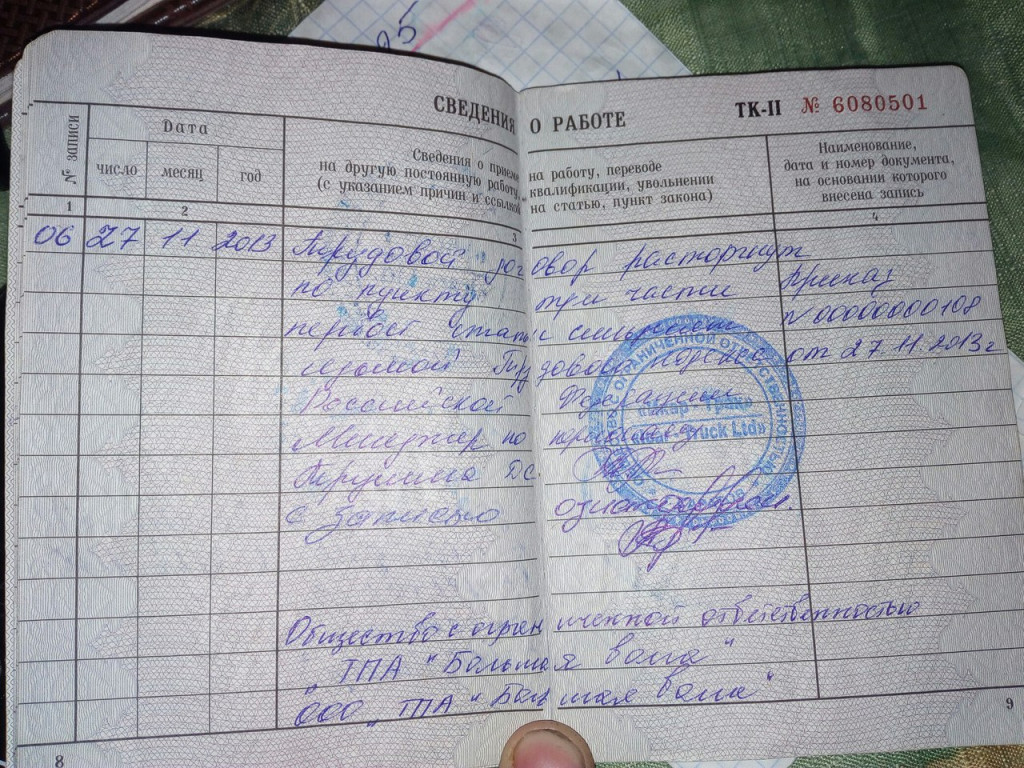 95
СВЕДЕНИЯ О РАБОТЕ ТК-II № 6080501
№ записи
Дата
число месяц год
Сведения о приеме на работу, переводе
на другую постоянную работу, квалификации, увольнении
(с указанием причин и ссылкой на статью, пункт закона)
Наименование,
дата и номер документа,
на основании которого
внесена запись
1 2 3 4
06 27 11 2013 Трудовой договор расторгнут
по пункту три части Приказ
первой статьи N 00000000108
седьмой Трудового кодекса от 27.11.2013 г
Российской Федерации
Менеджер по персоналу
Трушина
С записью ознакомлен.
ОГРАНИЧЕННОЙ ОТВЕТСТВЕННОСТЬЮ
Truck Ltd»
Общество с ограниченной ответственностью
"ТПА "Большая
ООО "ТПА
8
9